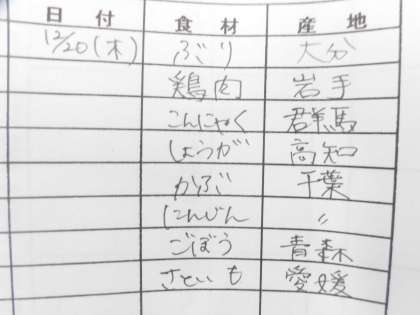 日付 食材 産地
12/20(木) ぶり 大分
鶏肉 岩手
こんにゃく 群馬
しょうが 高知
かぶ 千葉
にんじん 〃
ごぼう 青森
さといも 愛媛